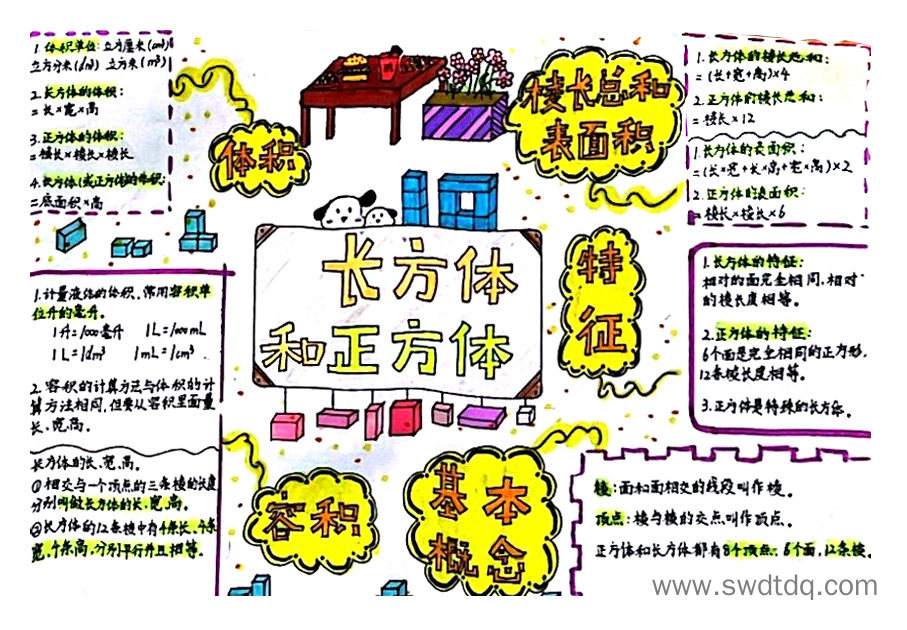 1. 体积单位: 立方厘米(cm³)
立方分米(dm³) 立方米(m³)
2. 长方体的体积:
=长×宽×高
3. 正方体的体积:
=棱长×棱长×棱长
4. 长方体(或正方体)的体积:
=底面积×高
体积
棱长总和
表面积
1. 长方体的棱长总和:
=(长+宽+高)×4
2. 正方体的棱长总和:
=棱长×12
1. 长方体的表面积:
=(长×宽+长×高+宽×高)×2
2. 正方体的表面积:
=棱长×棱长×6
长方体
和正方体
特征
1. 长方体的特征:
相对的面完全相同,相对
的棱长度相等。
2. 正方体的特征:
6个面是完全相同的正方形,
12条棱长度相等。
3. 正方体是特殊的长方体。
1. 计量液体的体积,常用容积单
位升的毫升。
1升=1000毫升 1L=1000mL
1L=1dm³ 1mL=1cm³.
2. 容积的计算方法与体积的计
算方法相同,但要从容积里面量
长、宽、高。
长方体的长、宽、高。
①相交与一个顶点的三条棱的长度
分别叫做长方体的长、宽、高。
②长方体的12条棱中有4条长、4条
宽、4条高,分别平行并且相等。
容积
基本
概念
棱:面和面相交的线段叫作棱。
顶点:棱与棱的交点叫作顶点。
正方体和长方体都有8个顶点,6个面,12条棱。
www.swdtdq.com